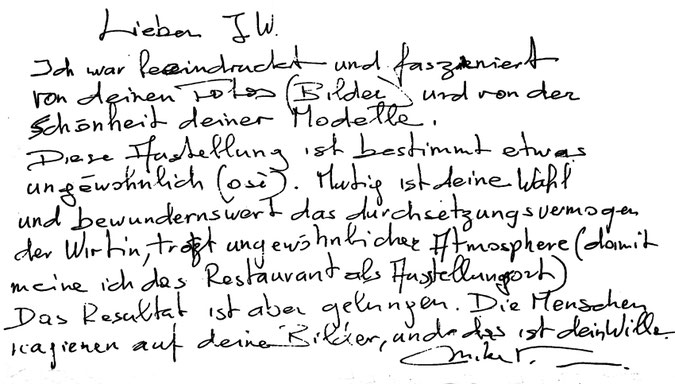 Lieber J W.
Ich war beeindruckt und fasziniert
von deinen Fotos (Bilder) und von der
Schönheit deiner Modelle.
Diese Austellung ist bestimmt etwas
ungewöhnlich (osè). Mutig ist deine Wahl
und bewundernswert das durchsetzungsvermogen
der Wirtin, trotzt ungewöhnlicher Atmosphere (damit
meine ich das Restaurant als Austellungort)
Das Resultat ist aber gelungen. Die Menschen
ragieren auf deine Bilder, und das ist dein Wille.